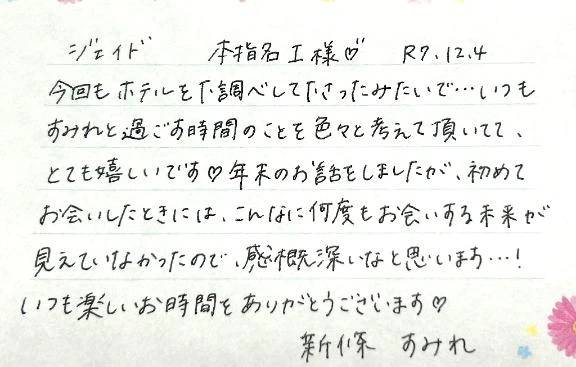 ジェイド 本指名 I様♡ R7.12.4
今回もホテルを下調べして下さったみたいで…いつも
すみれと過ごす時間のことを色々と考えて頂いてて、
とても嬉しいです♡年末のお話をしましたが、初めて
お会いしたときには、こんなに何度もお会いする未来が
見えていなかったので、感概深いなと思います…!
いつも楽しいお時間をありがとうございます♡
新條 すみれ